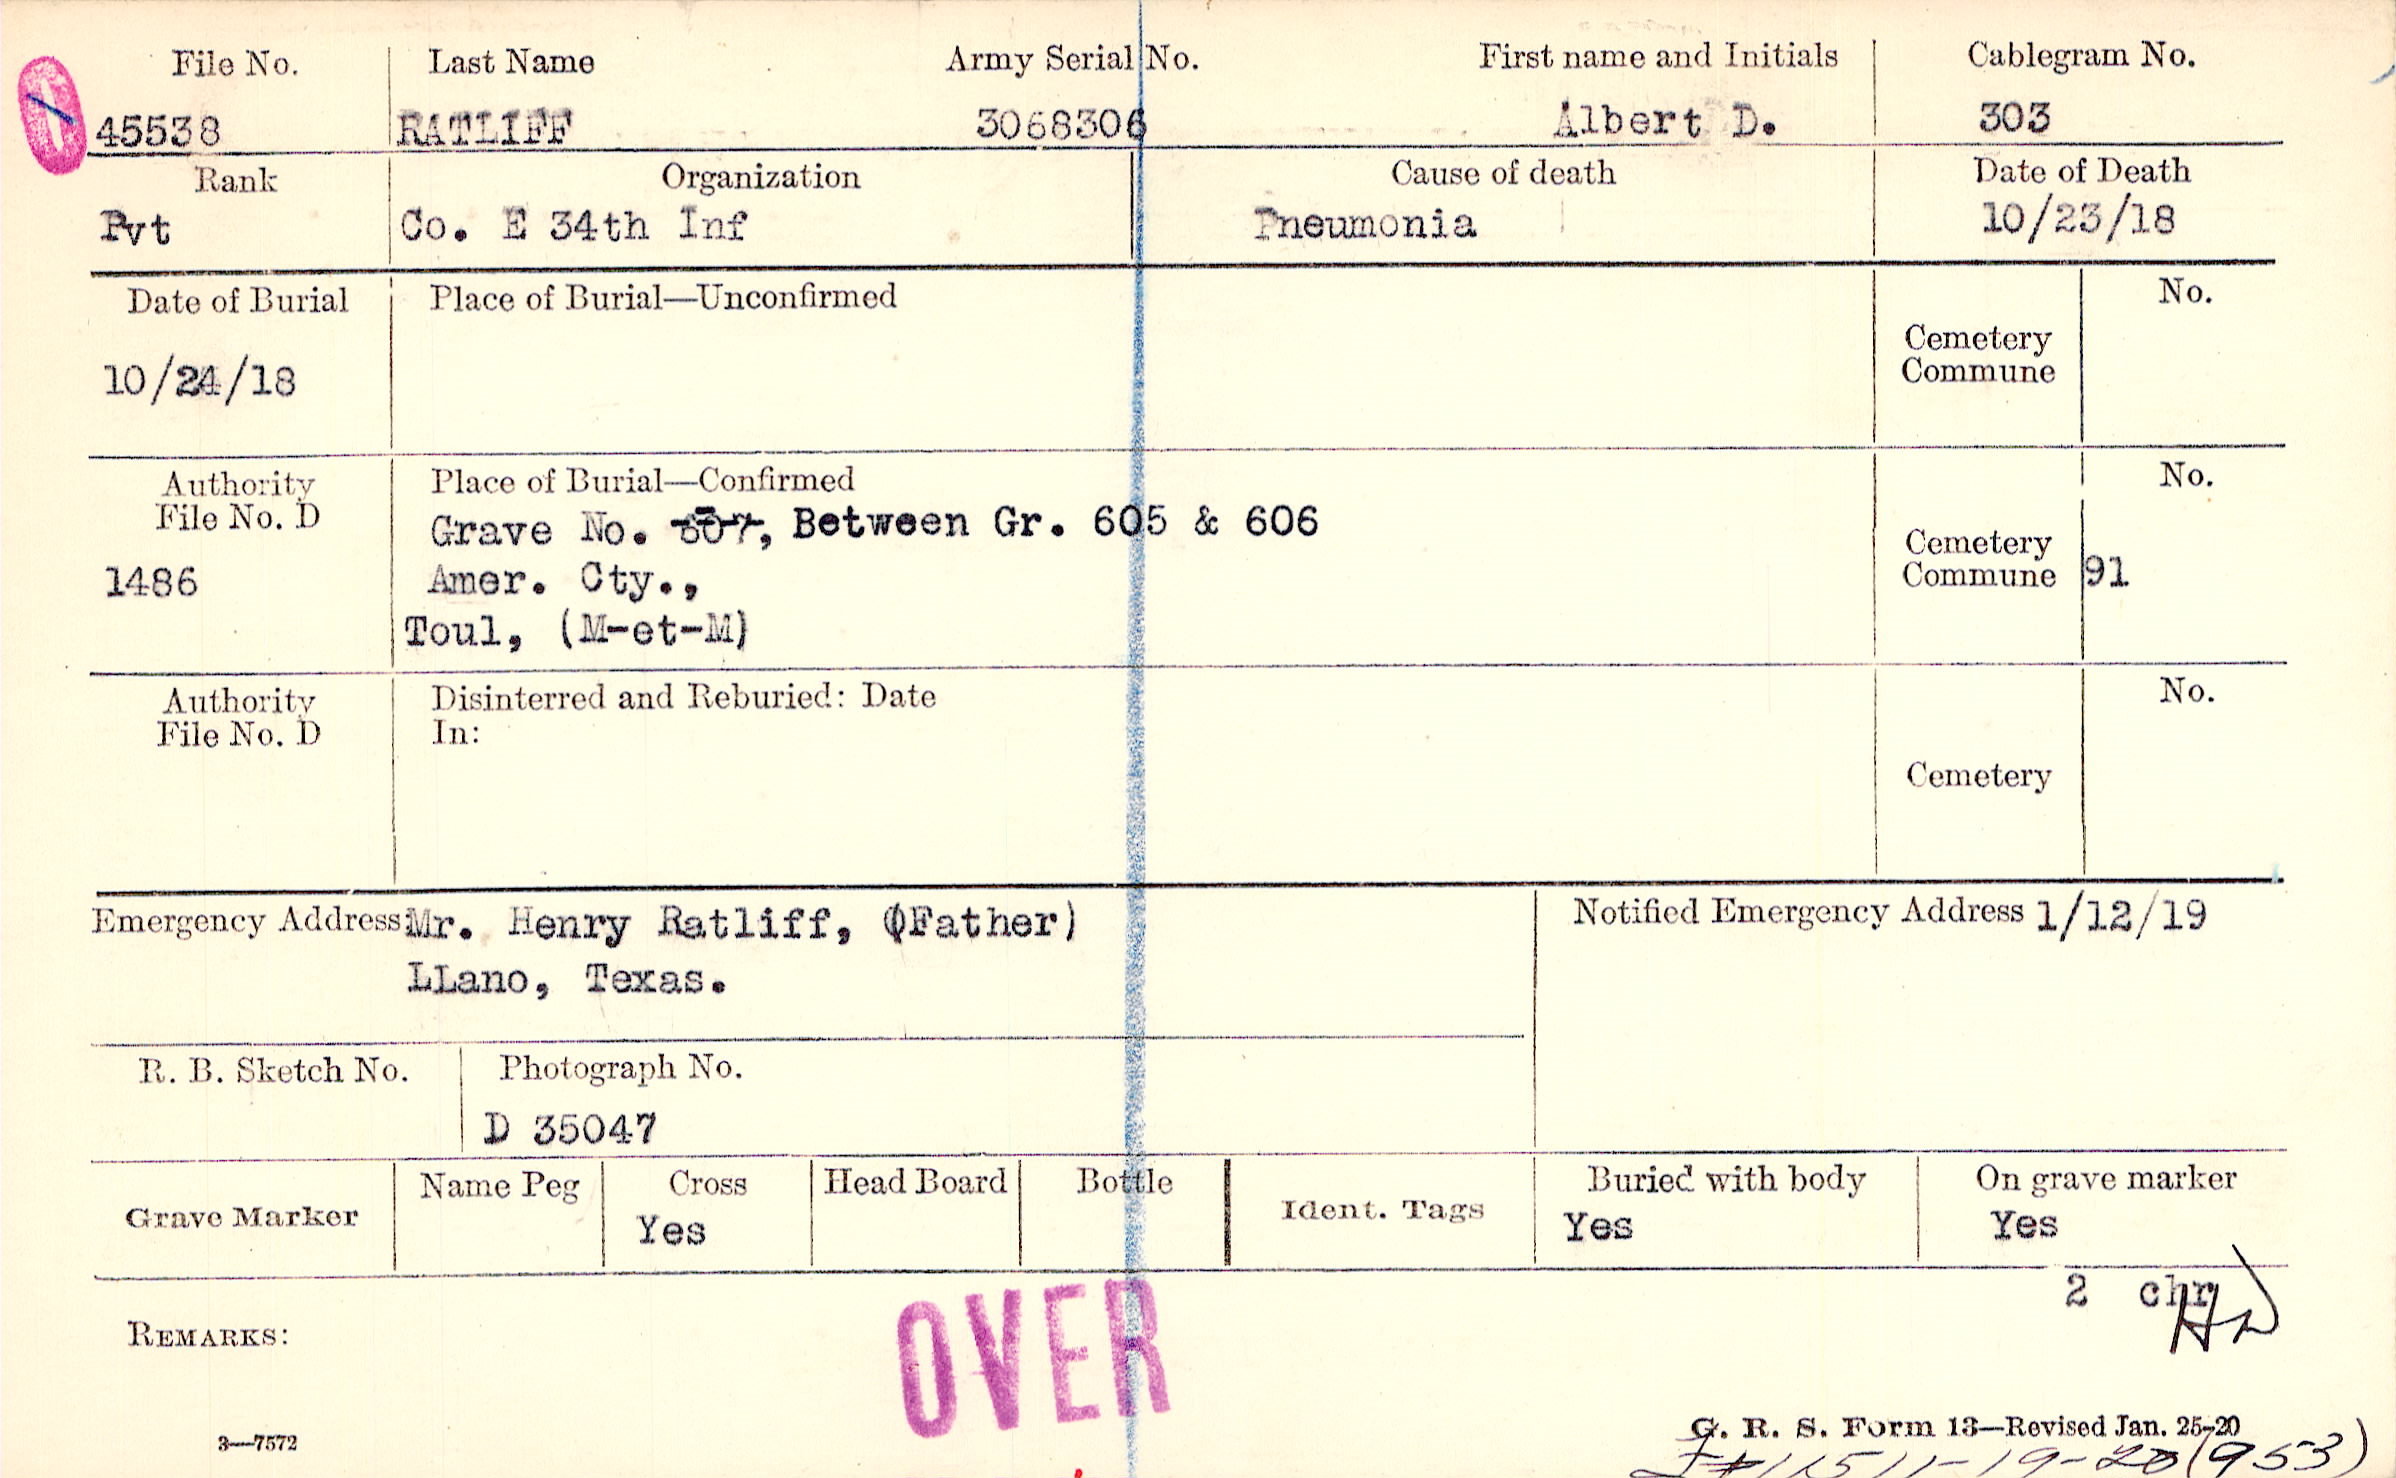 File No. Last Name Army Serial No. First name and Initials Cablegram No.
45538 RATLIFF 3068306 Albert D. 303
Rank Organization Cause of death Date of Death
Pvt Co. E 34th Inf Pneumonia 10/23/18
Date of Burial Place of Burial—Unconfirmed No.
Cemetery
Commune
10/24/18
Authority Place of Burial—Confirmed No.
File No. D
Grave No. 607, Between Gr. 605 & 606
Cemetery
Commune 91
1486 Amer. Cty.,
Toul, (M-et-M)
Authority Disinterred and Reburied: Date No.
File No. D In:
Cemetery
Emergency Address: Mr. Henry Ratliff, (Father) Notified Emergency Address 1/12/19
LLano, Texas.
R. B. Sketch No. Photograph No.
D 35047
Grave Marker Name Peg Cross Head Board Bottle Ident. Tags Buried with body On grave marker
Yes Yes Yes
2 chr
HD
REMARKS:
OVER
3—7572
G. R. S. Form 13—Revised Jan. 25-20
11-19-20 (953)